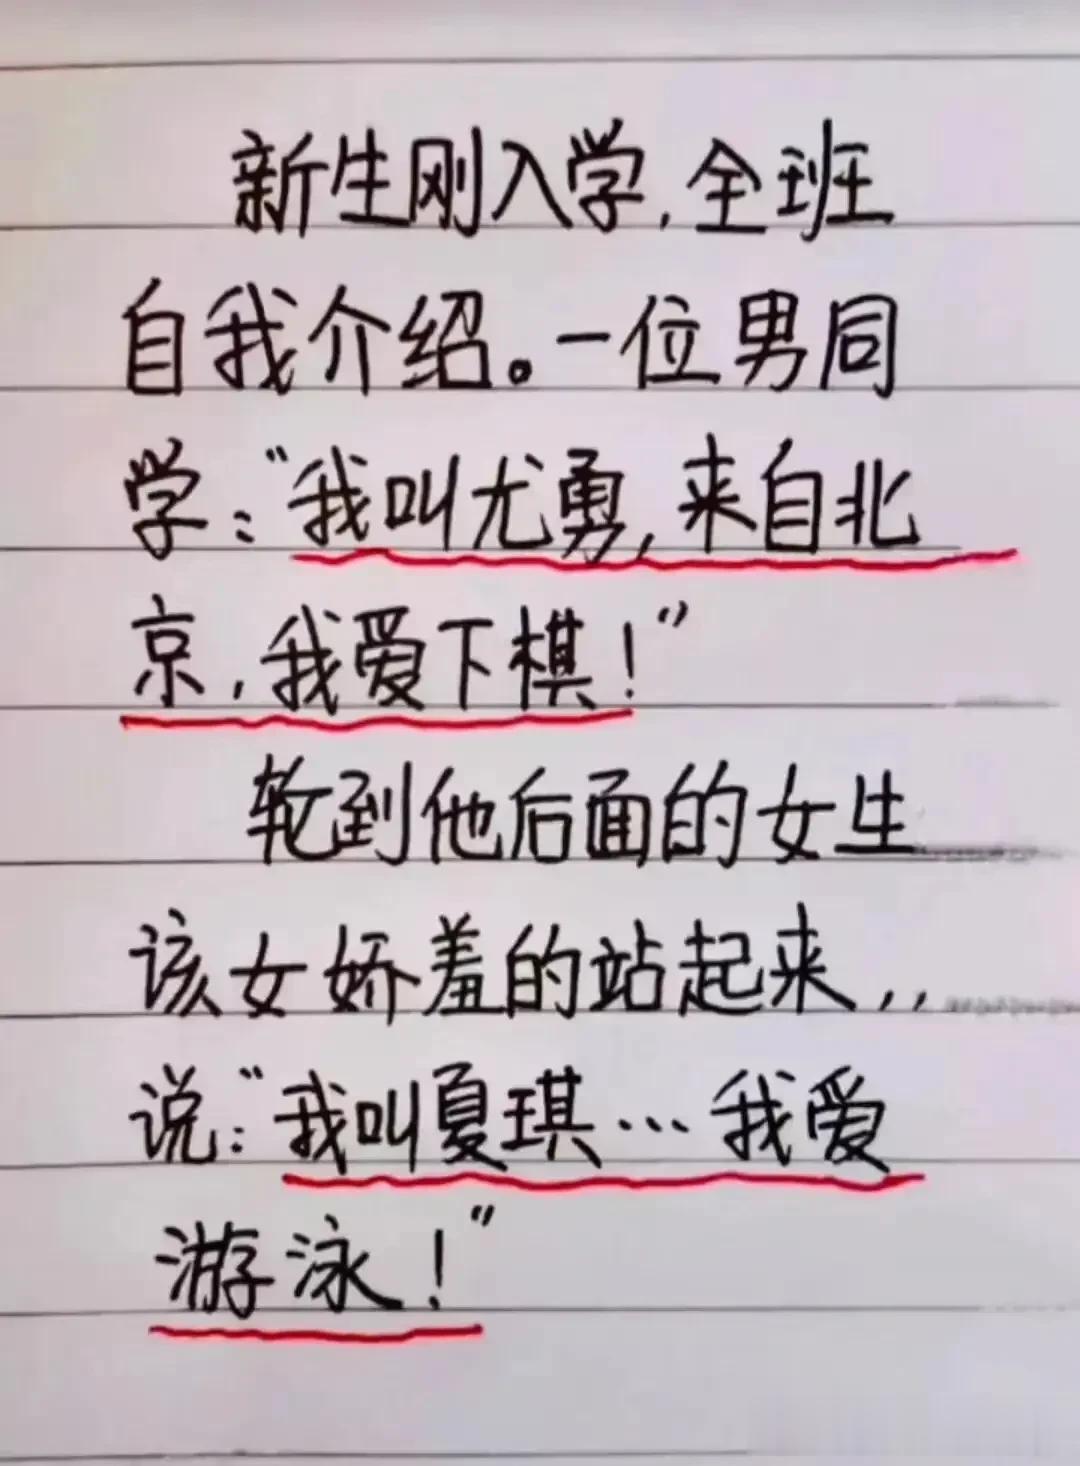 新生刚入学,全班
自我介绍。一位男同
学:“我叫尤勇,来自北
京,我爱下棋!”
轮到他后面的女生
该女娇羞的站起来,,
说:“我叫夏琪…我爱
游泳!”